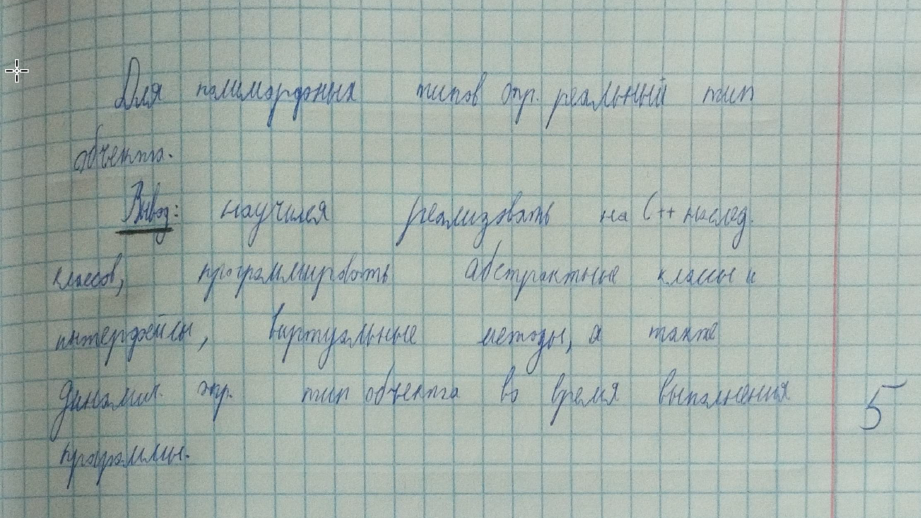 Для полиморфных типов опр. реальный тип
объекта.
Вывод: научился реализовать на C++ наслед.
классов, программировать абстрактные классы и
интерфейсы, виртуальные методы, а также
динамич. опр. тип объекта во время выполнения
программы.
5